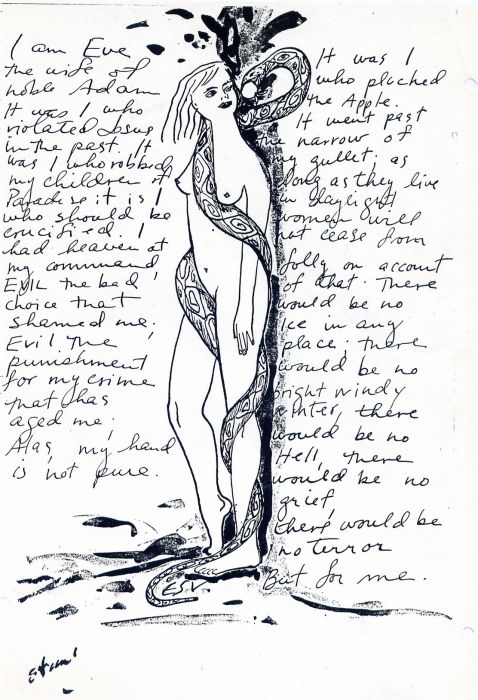 I am Eve
the wife of
noble Adam
It was I who
violated Jesus
in the past. It
was I who robbed
my children of
Paradise it is I
who should be
crucified. I
had heaven at
my command
EVIL the bad
choice that
shamed me.
Evil the
punishment
for my crime
that has
aged me.
Alas, my hand
is not pure.
It was I
who plucked
the Apple.
It went past
the narrow of
my gullet; as
long as they live
in daylight
women will
not cease from
folly on account
of that. There
would be no
Ice in any
place; there
would be no
bright windy
winter, there
would be no
Hell, there
would be no
grief,
there would be
no terror
But for me.